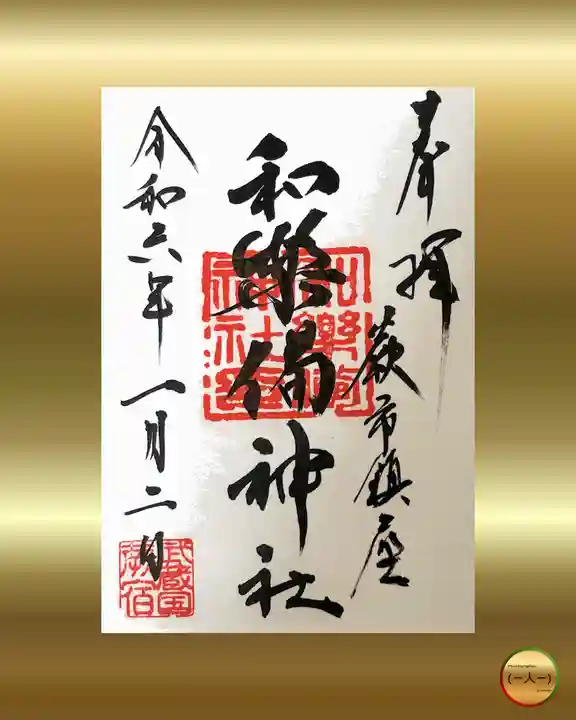 奉拝
蕨市鎮座
和樂備神社
令和六年一月二日
武蔵国
蕨宿
(一人一)